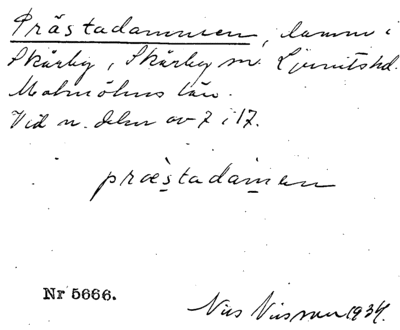 Prästadammen, damm i
Skårby, Skårby sn. Ljunitshd.
Malmöhus län.
Vid n. delen av 7 i 17.
præstadamen
Nr 5666.
Nils Nilsson 1934.